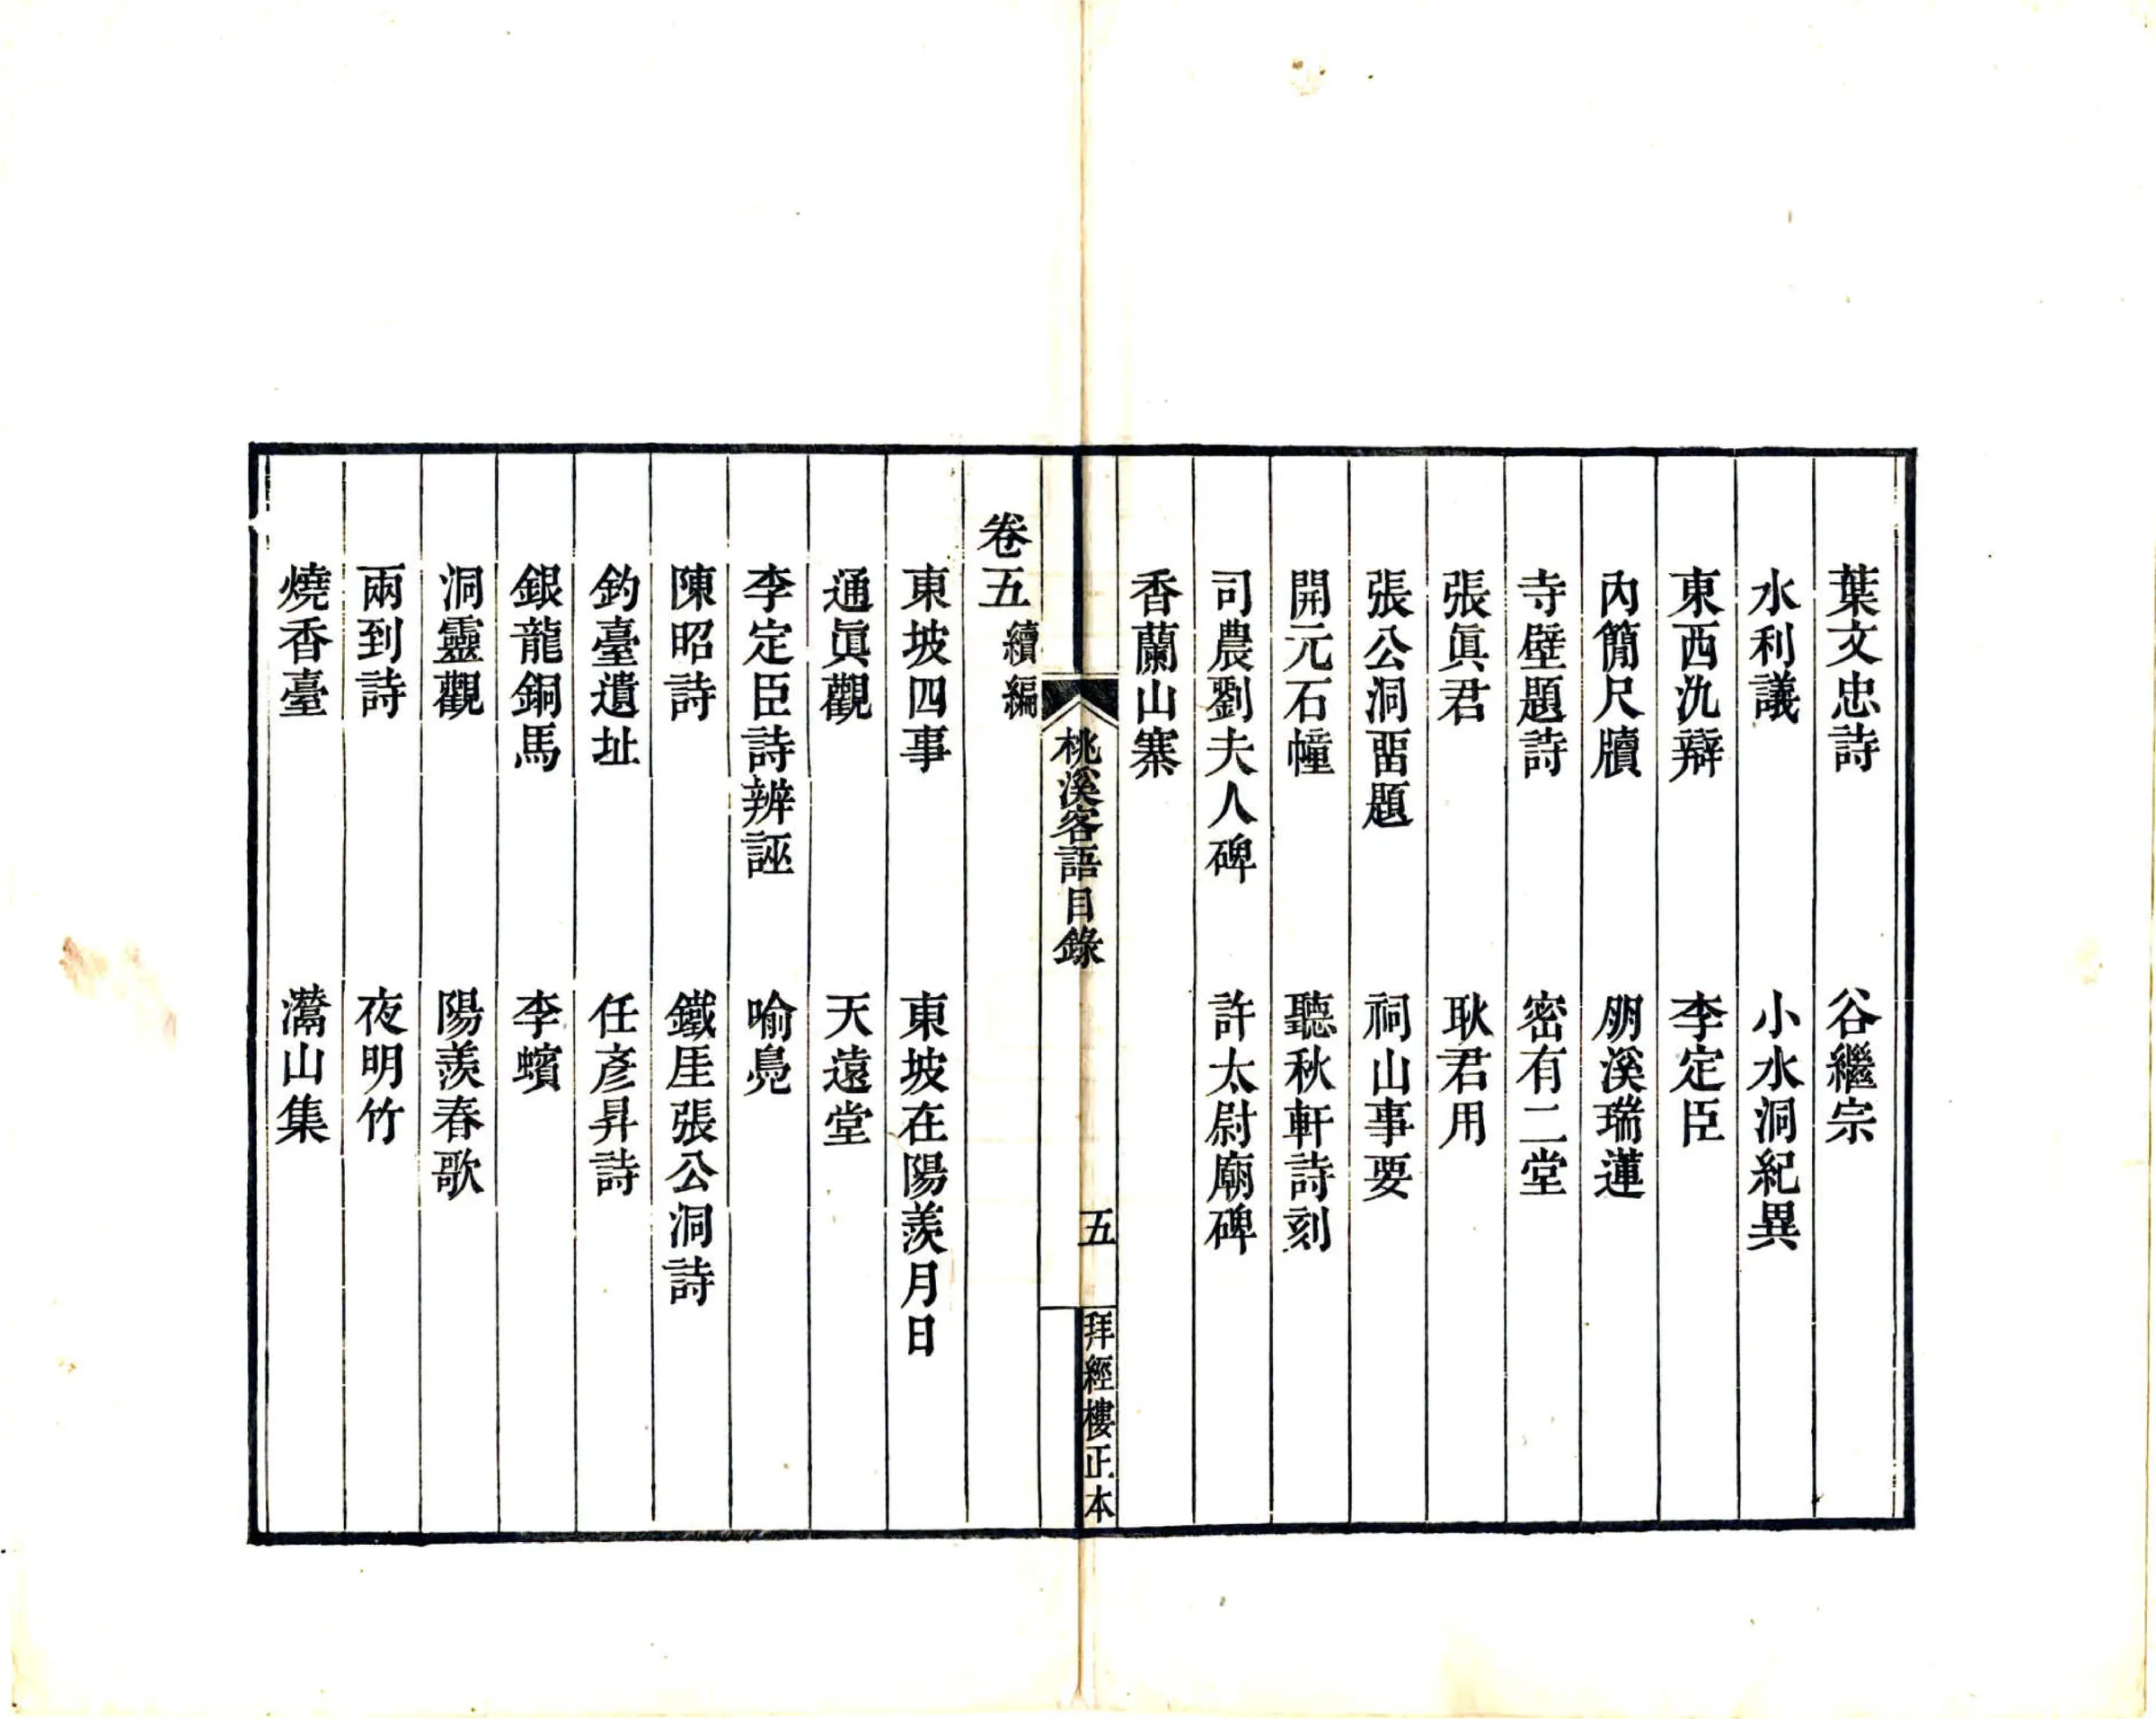 葉文忠詩　谷繼宗
水利議　小水洞紀異
東西氿辯　李定臣
內簡尺牘　朋溪瑞蓮
寺壁題詩　密有二堂
張眞君　耿君用
張公洞畱題　祠山事要
開元石幢　聽秋軒詩刻
司農劉夫人碑　許太尉廟碑
香蘭山寨
桃溪客語目錄　五　拜經樓正本
卷五續編
東坡四事　東坡在陽羨月日
通眞觀　天遠堂
李定臣詩辨誣　喻鳧
陳昭詩　鐵厓張公洞詩
釣臺遺址　任彥昇詩
銀龍銅馬　李蠙
洞靈觀　陽羨春歌
兩到詩　夜明竹
燒香臺　灊山集